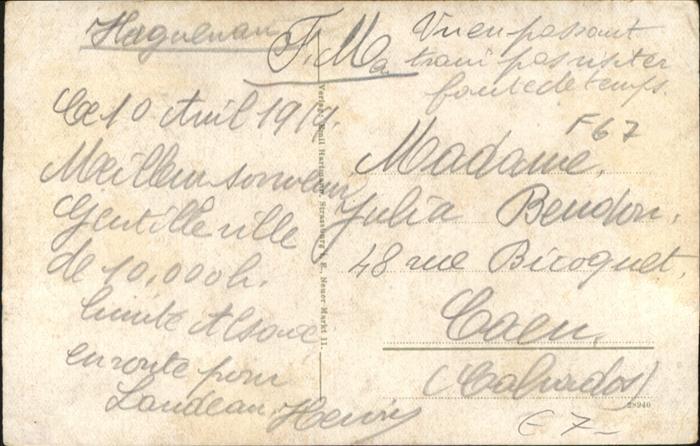 Haguenau F. M.
Vu en passant
a trani pas visiter
faute de temps.
F67
Le 10 Avril 191
Meilleur souvenir
Gentille ville
de 10,000 h.
limite Alsace
en route pour
Landeau. Henri
Madame,
Julia Bendon,
48 rue Bicoquet,
Caen,
(Calvados)
Verlag: Emil Hartmann, Strassburg i. E., Neuer Markt 11.
28940
€ 7-